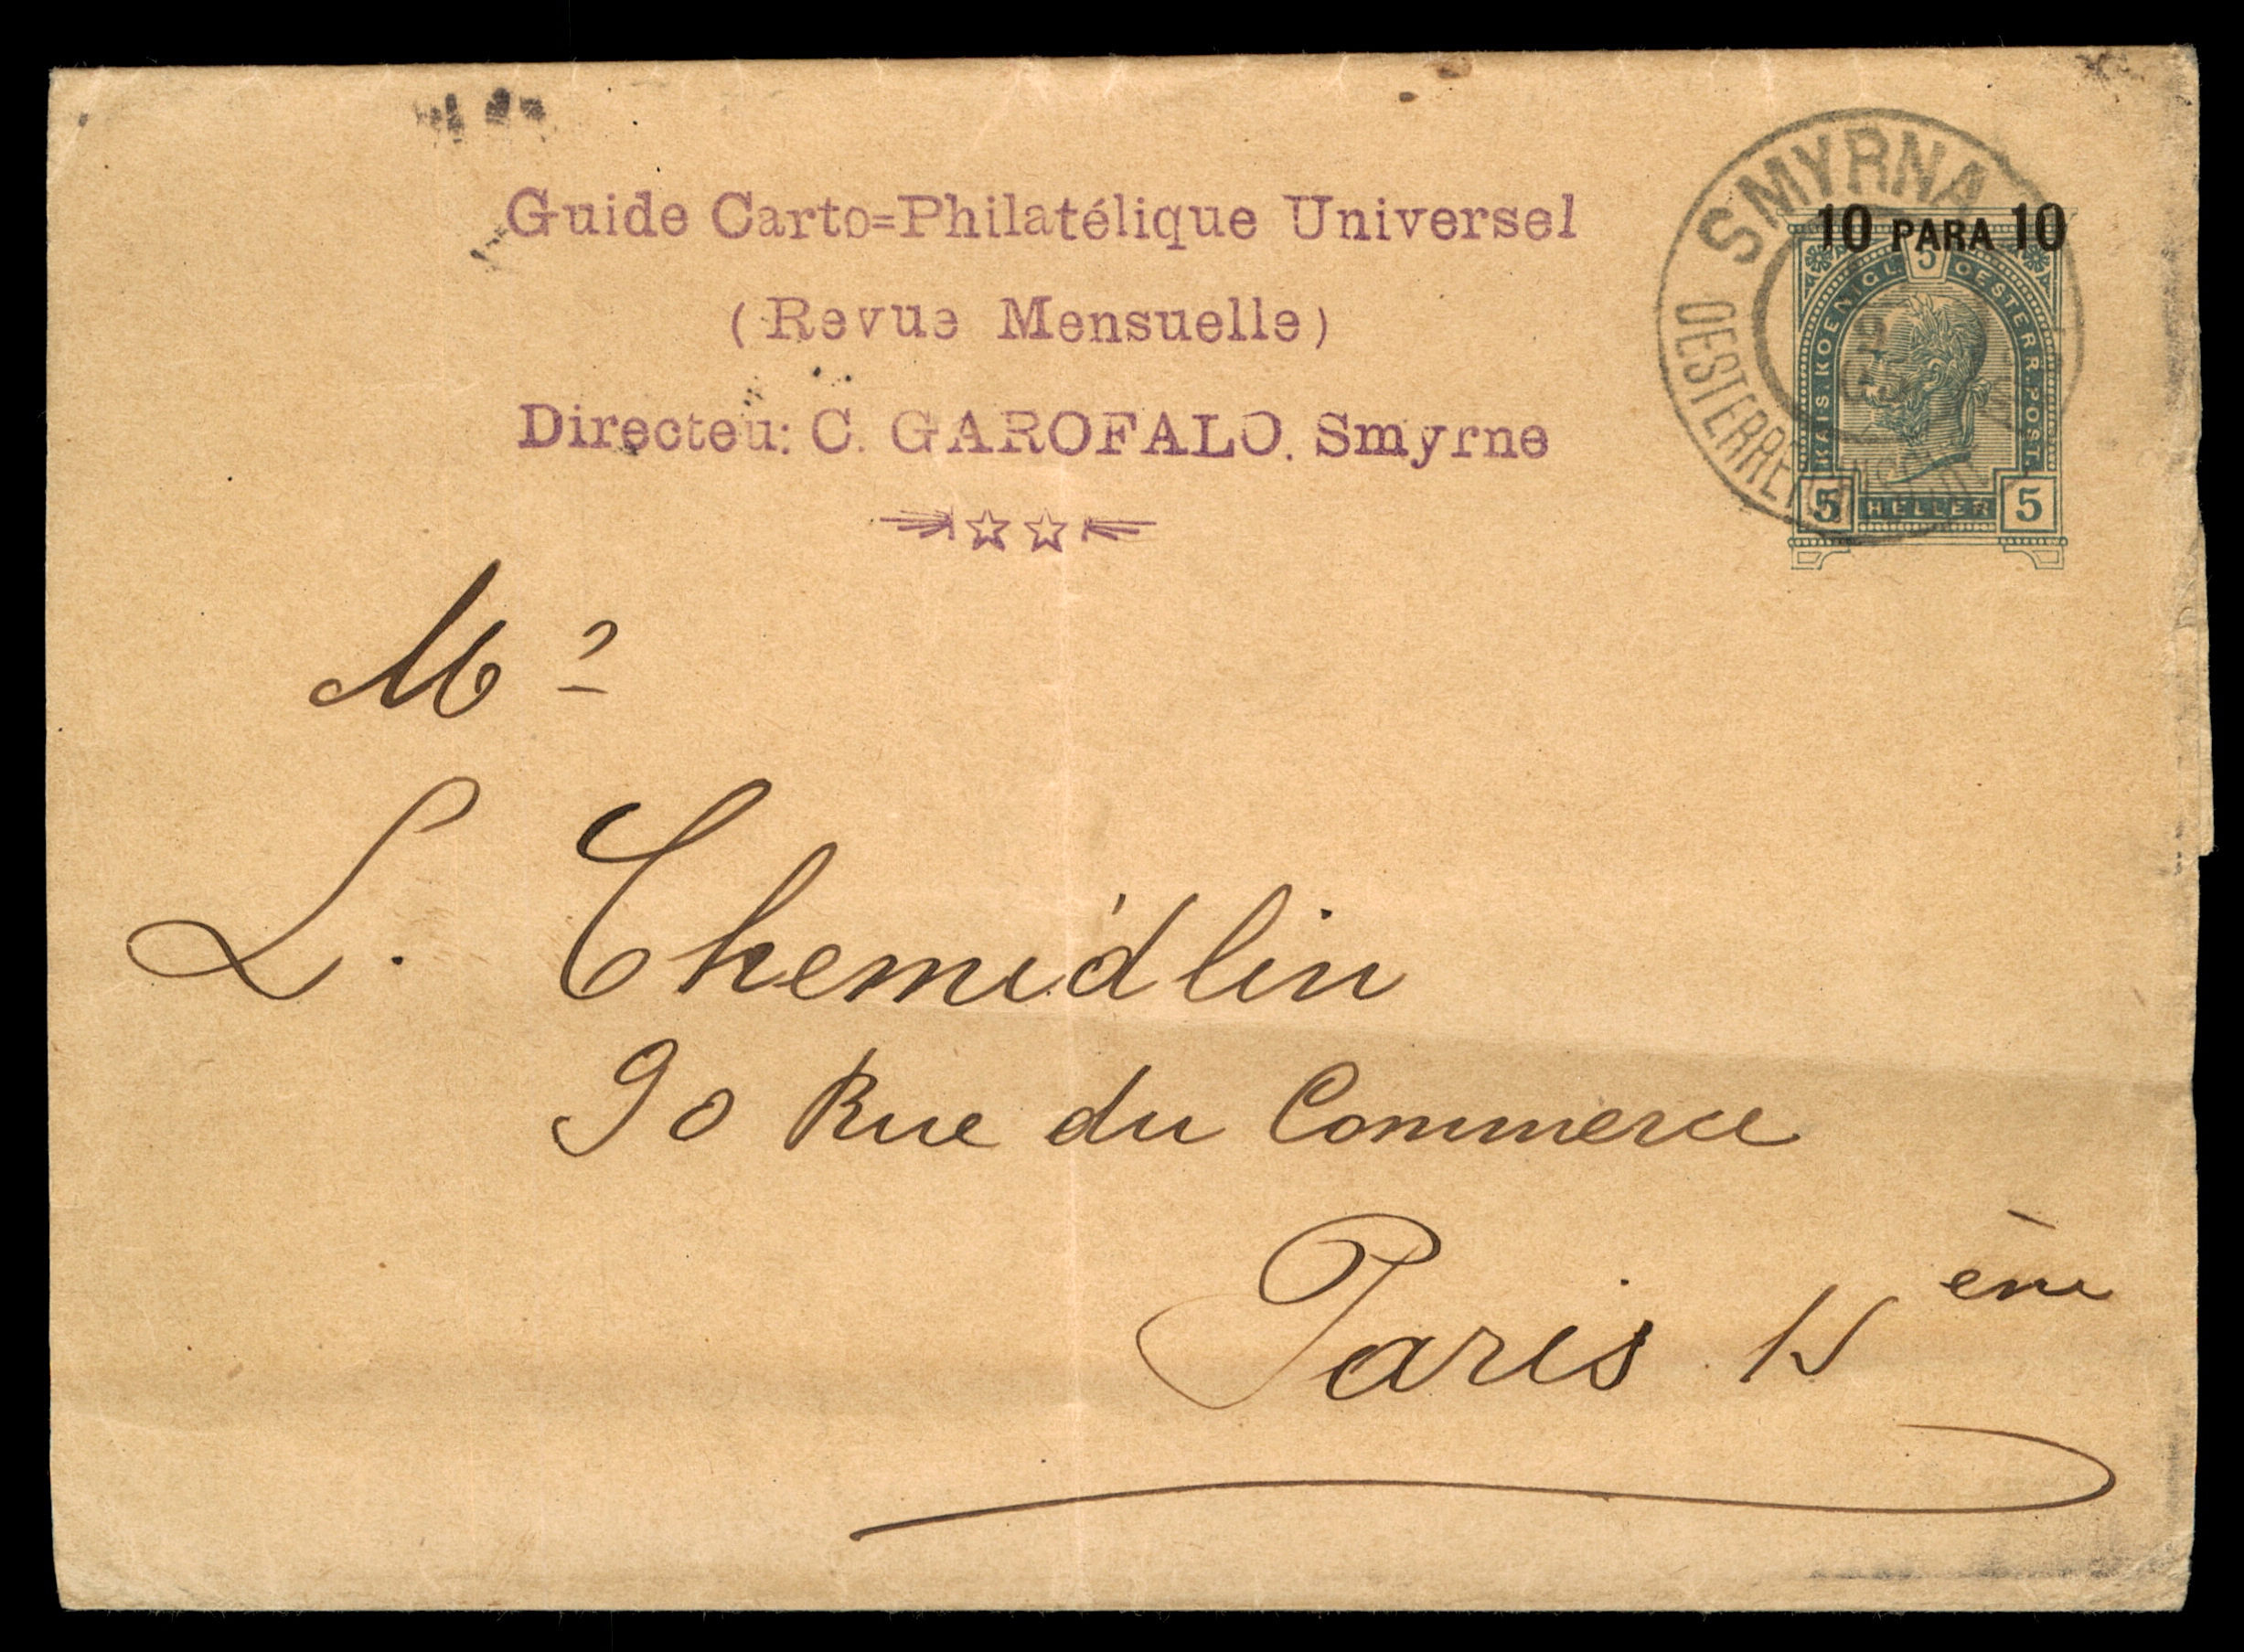 Guide Carto=Philatélique Universel
(Revue Mensuelle)
Directeu: C. GAROFALO. Smyrne
SMYRNA
10 PARA 10
5
KAIS. KOENIGL. OESTERR. POST.
5 HELLER 5
Mr
L. Chemidlin
90 Rue du Commerce
Paris 15 ème